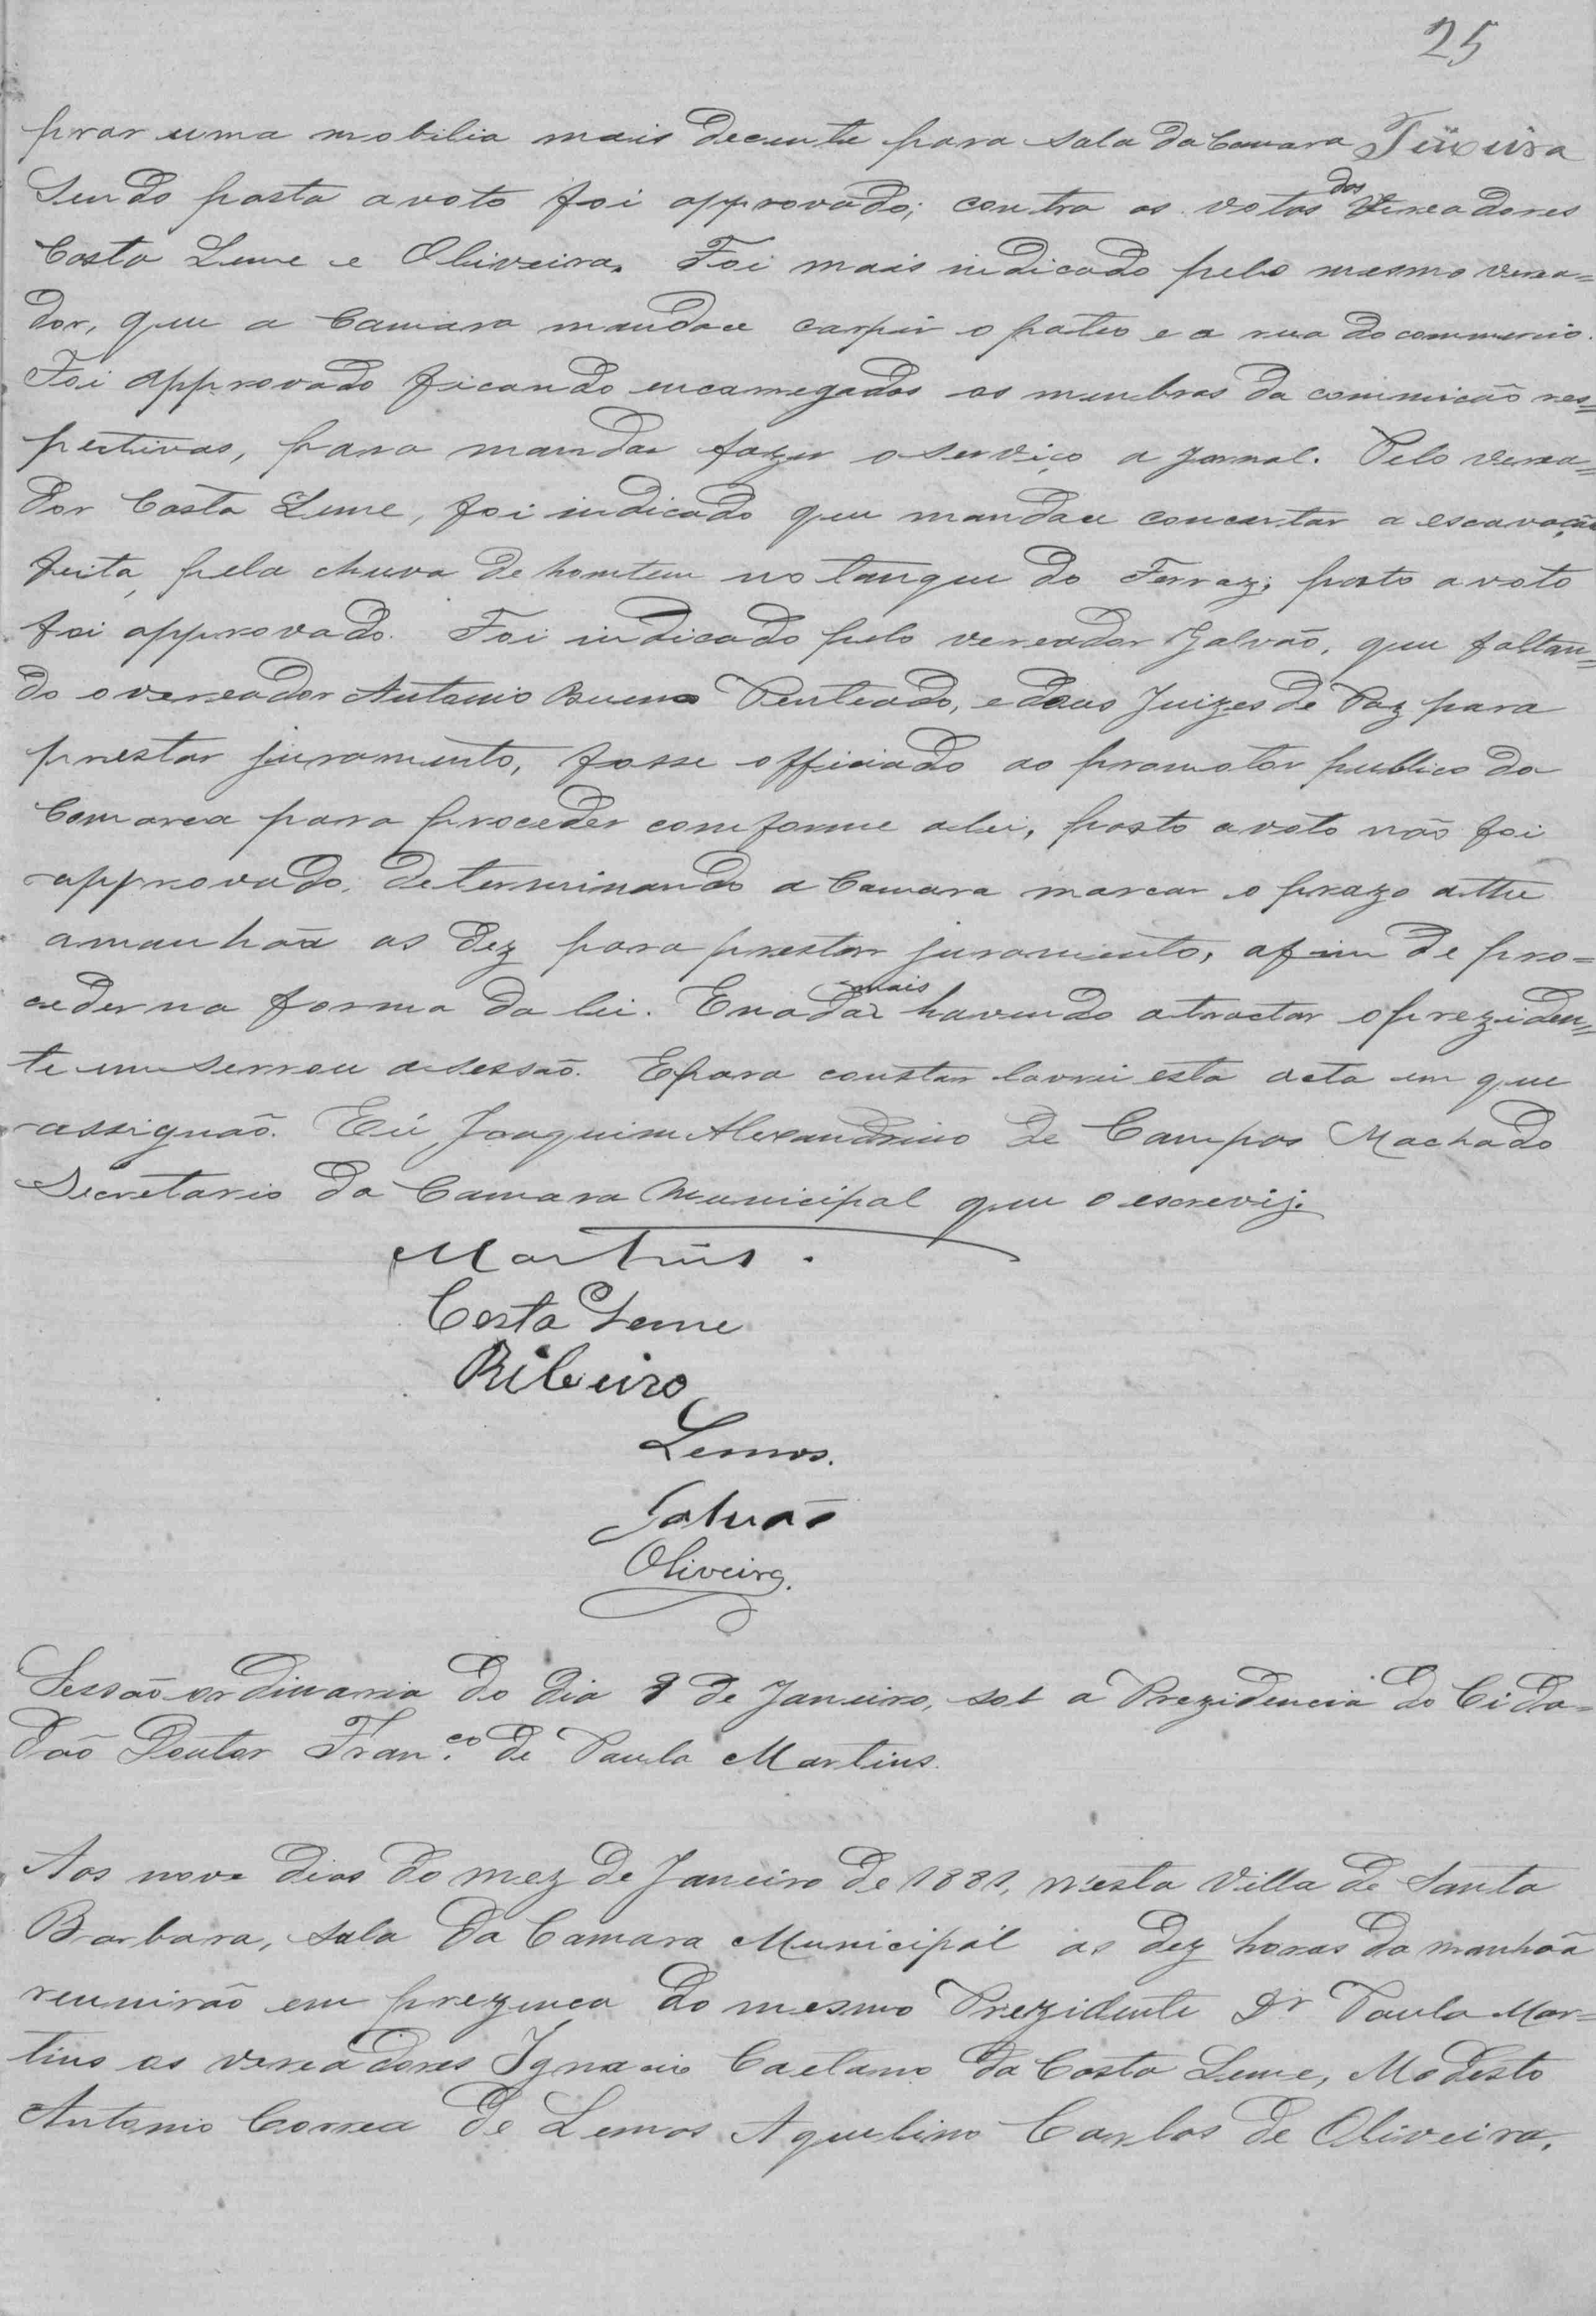 25
prar uma mobilia mais decente para sala da Camara Teixeira
Sendo posta a voto foi approvado; contra os votos dos Vereadores
Costa Leme e Oliveira. Foi mais indicado pelo mesmo verea=
dor, que a Camara mandace carpir o pateo e a rua do commercio.
Foi approvado ficando encarregados os membros da commicão res=
pectivas, para mandar fazer o serviço a jornal. Pelo verea=
dor Costa Leme, foi indicado que mandace concertar a escavação
feita, pela chuva de homtem no tanque do Ferraz; posto a voto
foi approvado. Foi indicado pelo vereador Galvão, que faltan=
do o vereador Antonio Bueno Penteado, e dous Juizes de Paz para
prestar juramento, fosse officiado ao promotor publico da
Comarca para proceder comforme a lei, posto a voto não foi
approvado, determinando a Camara marcar o prazo athe
amanhãa as dez para prestar juramento, afim de pro=
ceder na forma da lei. E nada mais havendo a tractar o preziden=
te emserrou a sessão. E para constar lavrei esta acta em que
assignaõ. Eú Joaquim Alexandrino de Campos Machado
Secretario da Camara Municipal que o escrevij.
Martins.
Costa Leme
Ribeiro
Lemos.
Galvão
Oliveira.
Sessão ordinaria do dia 9 de Janeiro, sob a Prezidencia do Cida=
dão Doutor Fran.co de Paula Martins.
Aos nove dias do mez de Janeiro de 1881, n'esta Villa de Santa
Barbara, sala da Camara Municipal as dez horas da manhãa
reunirão em prezenca do mesmo Prezidente Dr Paula Mar=
tins os vereadores Ignacio Caetano da Costa Leme, Modesto
Antonio Correa de Lemos Aquelino Carlos de Oliveira,